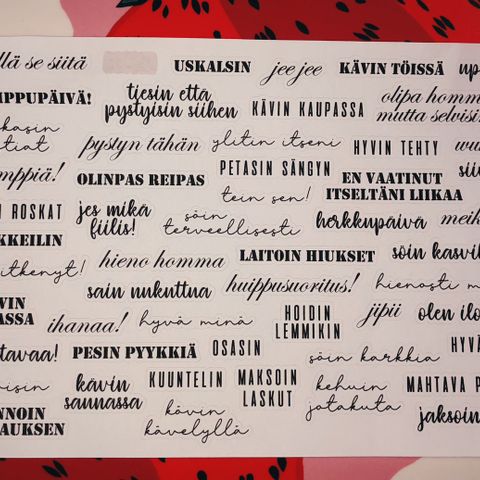 llä se siitä
USKALSIN
jee jee
KÄVIN TÖISSÄ
MPPUPÄIVÄ!
tiesin että
pystyisin siihen
KÄVIN KAUPASSA
olipa homm
mutta selvisin
pystyn tähän
ylitin itseni
HYVIN TEHTY
mppiä!
OLINPAS REIPAS
PETASIN SÄNGYN
EN VAATINUT
ITSELTÄNI LIIKAA
tein sen!
ROSKAT
jes mikä
fiilis!
söin
terveellisesti
herkkupäivä
meik
KKEILIN
itkenyt!
hieno homma
LAITOIN HIUKSET
söin kasvi
sain nukuttua
huippusuoritus!
hienosti m
VIN
ASSA
ihanaa!
hyvä minä
HOIDIN
LEMMIKIN
jipii
olen ilo
tavaa!
PESIN PYYKKIÄ
OSASIN
söin karkkia
HYVÄ
kävin
saunassa
KUUNTELIN
MAKSOIN
LASKUT
kehuin
jotakuta
MAHTAVA P
NNOIN
AUKSEN
kävin
kävelyllä
jaksoin